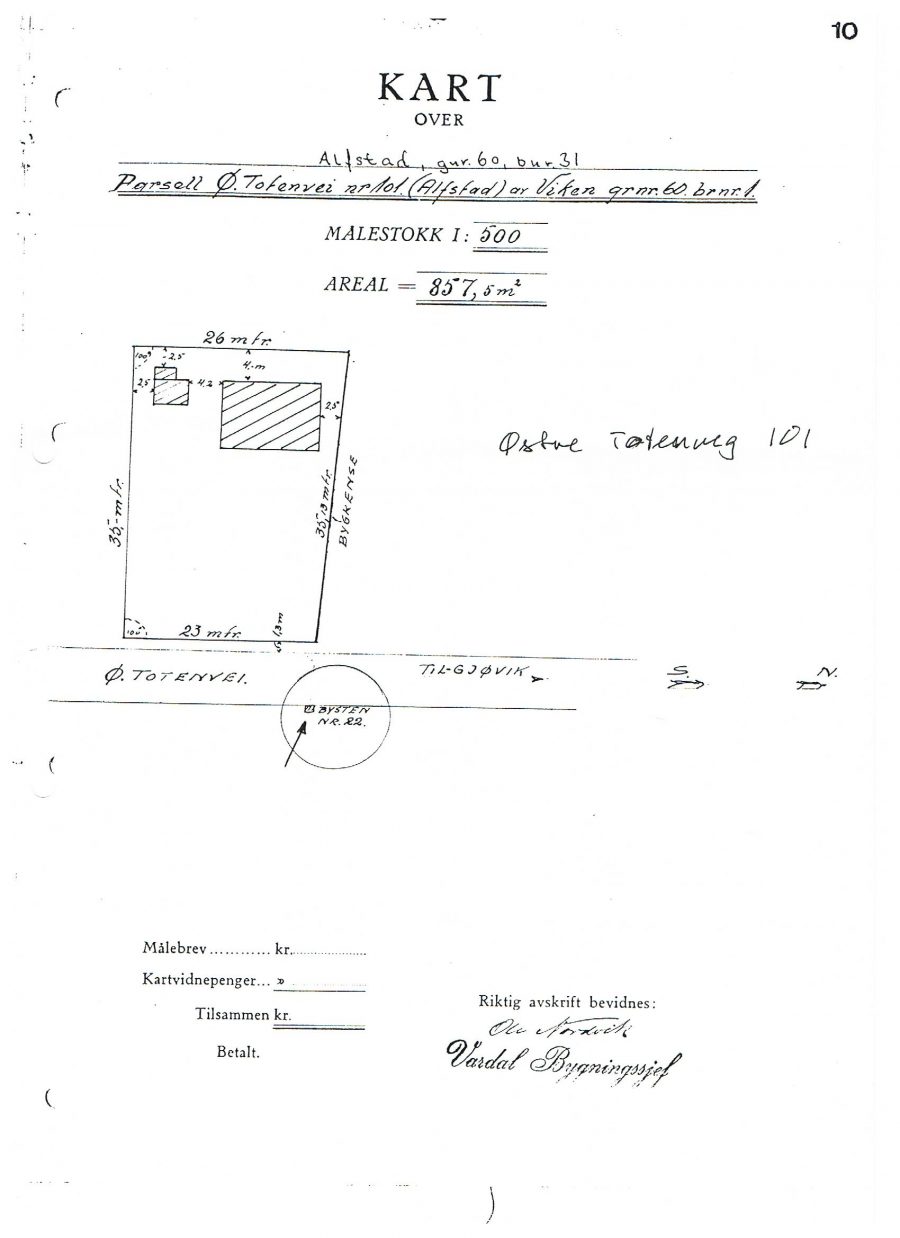 10
KART
OVER
Alfstad, gnr. 60, bnr. 31
Parsell Ø. Totenvei nr 101. (Alfstad) av Viken grnr. 60. brnr. 1.
MÅLESTOKK 1: 500
AREAL = 857,5 m²
26 mtr.
100g 2,5
4,-m
2,5 4,2
2,5
Østre Totenveg 101
35,- mtr.
35,13 mtr.
BYGRENSE
100g
23 mtr.
1,3 m
Ø. TOTENVEI.
TIL GJØVIK
S. N.
BYSTEN
NR. 22.
Målebrev ........... kr.
Kartvidnepenger... »
Tilsammen kr.
Betalt.
Riktig avskrift bevidnes:
Nordvik
Vardal Bygningssjef